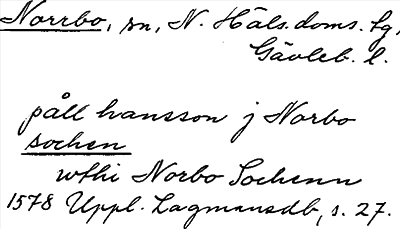 Norrbo, sn, N. Häls. doms. sg,
Gävleb. l.
påll hansson j Norbo
sochen
wthi Norbo Sochenn
1578 Uppl. Lagmansdb, s. 27.